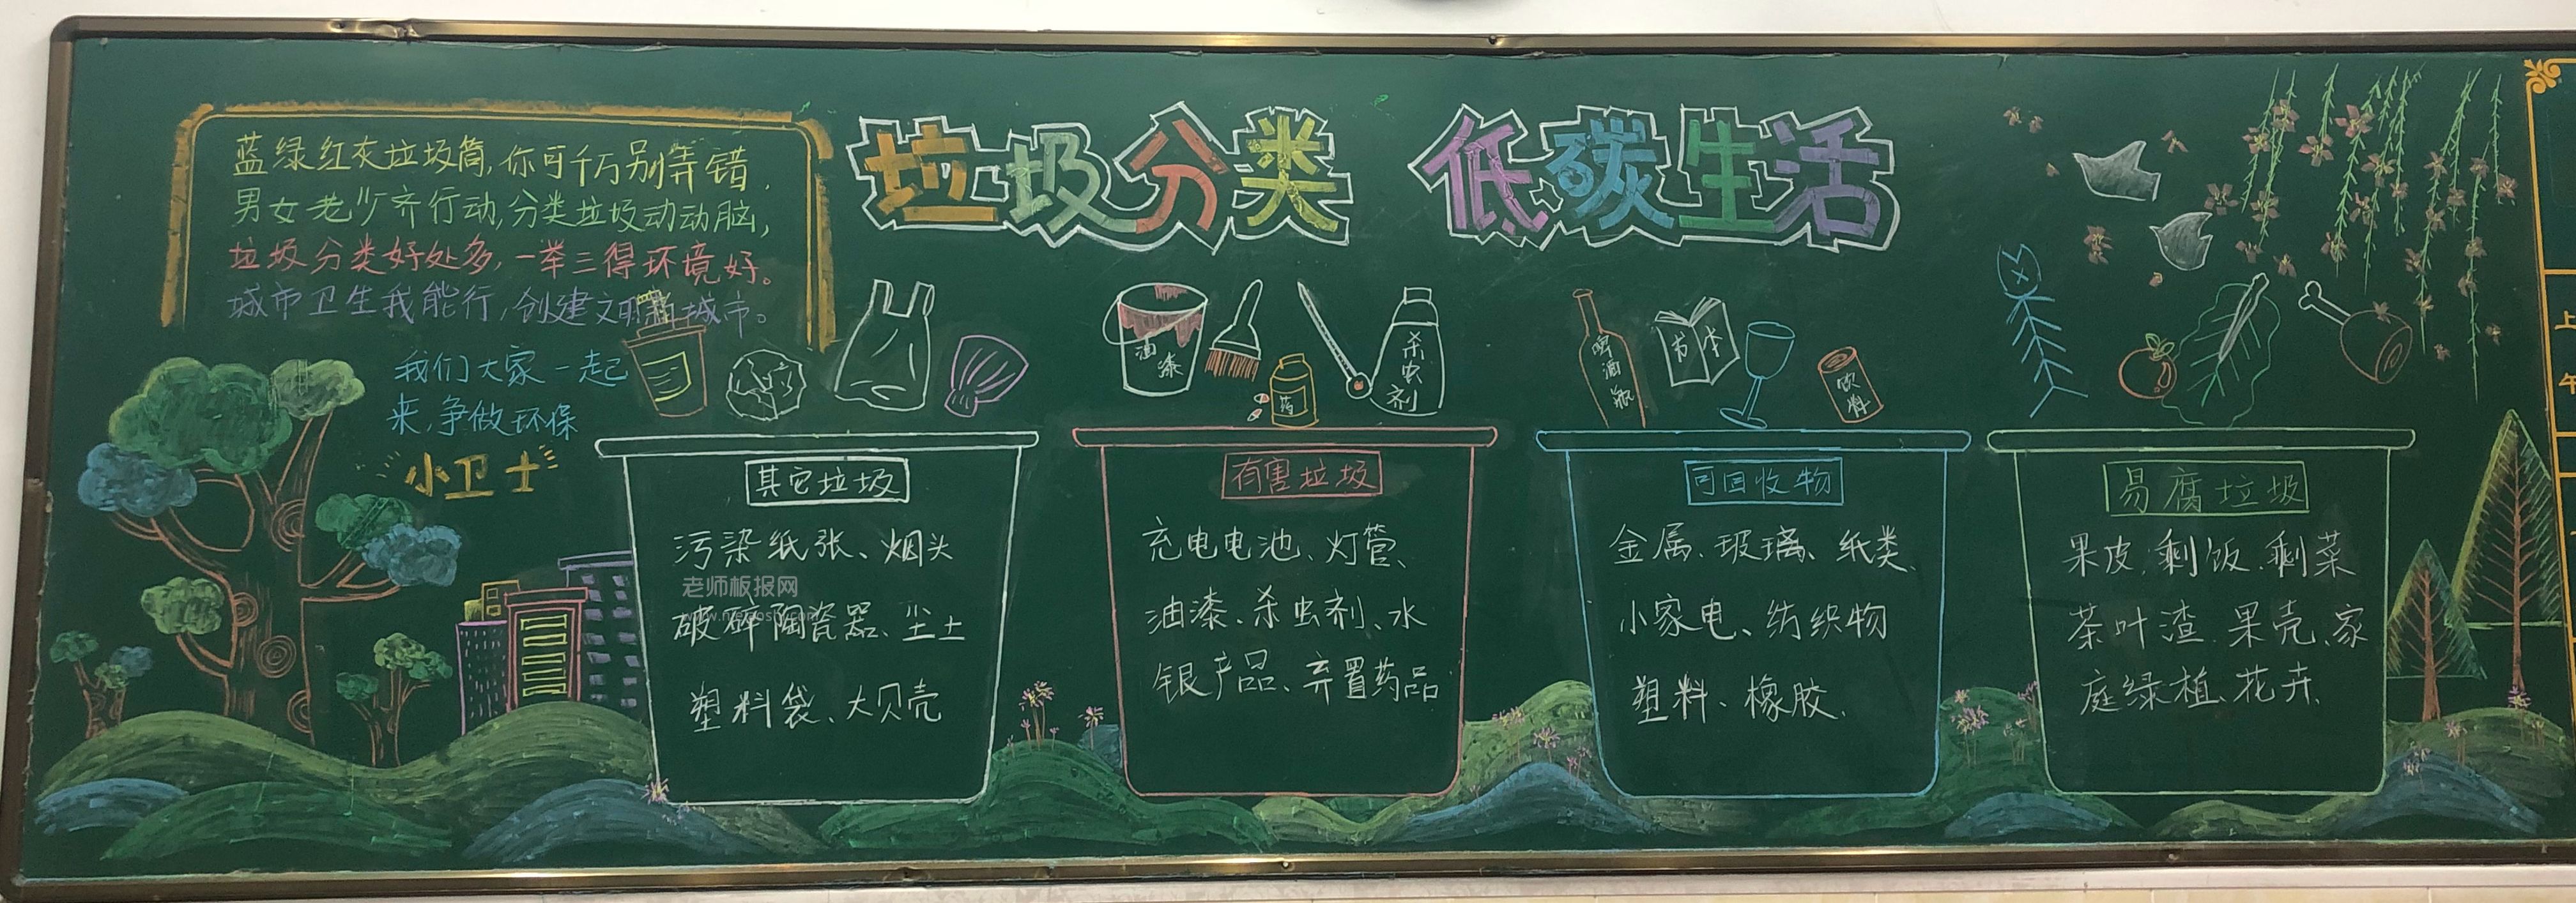 垃圾分类 低碳生活
蓝绿红灰垃圾筒,你可千万别弄错,
男女老少齐行动,分类垃圾动动脑,
垃圾分类好处多,一举三得环境好。
城市卫生我能行,创建文明新城市。
我们大家一起
来,争做环保
小卫士
油漆
药
杀虫剂
啤酒瓶
书本
饮料
其它垃圾
污染纸张、烟头
破碎陶瓷器、尘土
塑料袋、大贝壳
老师板报网
有害垃圾
充电电池、灯管、
油漆、杀虫剂、水
银产品、弃置药品
可回收物
金属、玻璃、纸类、
小家电、纺织物
塑料、橡胶、
易腐垃圾
果皮、剩饭、剩菜
茶叶渣、果壳、家
庭绿植、花卉、
上
午